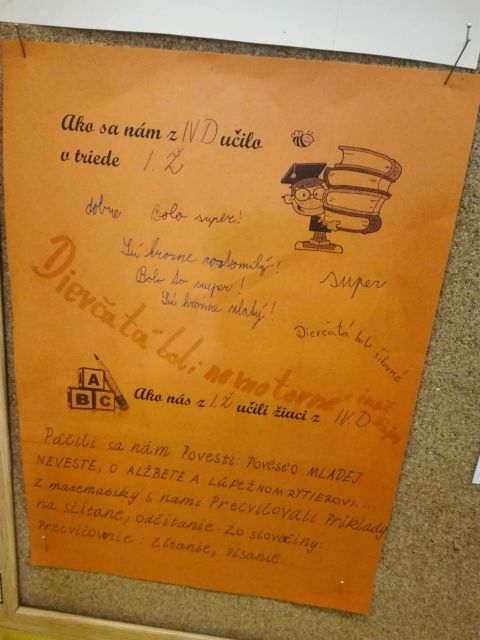 Ako sa nám z IV.D učilo
v triede 1. Ž
dobre Bolo super!
Sú hrozne roztomilý!
Bolo to super!
Sú hrozne zlatý!
super
Dievčatá boli šikovné
Dievčatá boli nemotorné ináč
A
B C
Ako nás z 1.Ž učili žiaci z IV.D
Páčili sa nám Povesti: Povesť O MLADEJ
NEVESTE, O ALŽBETE A LÚPEŽNOM RYTIEROVI...
z matematiky s nami Precvičovali Príklady
na sčítane, odčítanie. Zo slovčiny:
Precvičovnie: čítanie, písanie..